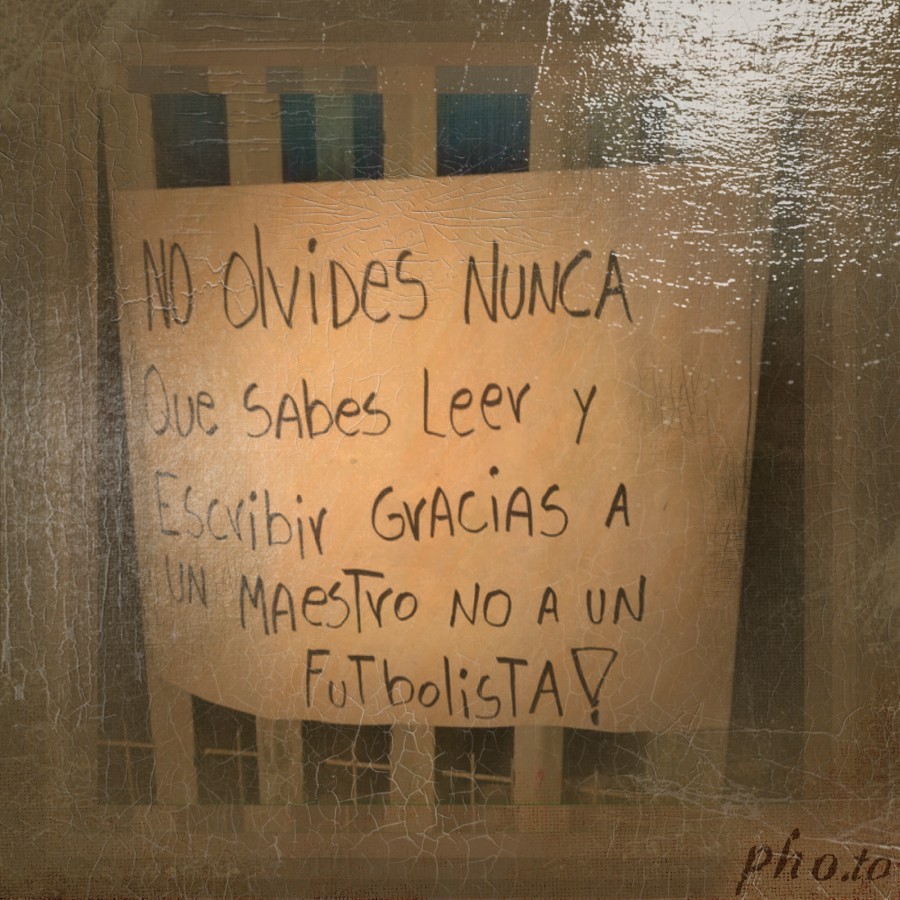 NO OlviDeS NUNCA
Que SAbes Leer y
Escribir GrACiAS A
UN MAesTro NO A UN
FuTbolisTA!
pho.to